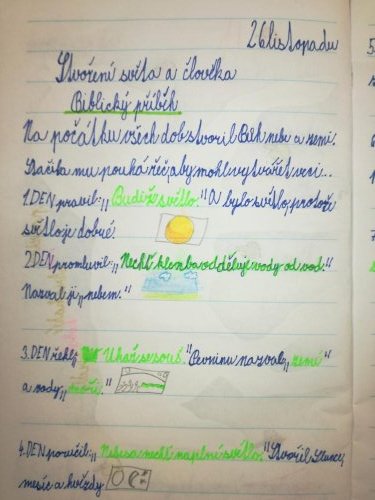 26 listopadu
Stvoření světa a člověka
Biblický příběh
Na počátku všech dob stvořil Bůh nebe a zemi.
Stačila mu pouhá řeč, aby mohl vytvářet věci...
1. DEN pravil: „Budiž světlo." A bylo světlo, protože
světlo je dobré.
2. DEN promluvil: „Nechť klenba vod odděluje vody od vod."
Nazval ji „nebem."
3. DEN řekl: „Ukaž se souš." Pevninu nazval „zemí"
a vody „moři."
4. DEN poručil: „Nebesa nechť naplní světlo." Stvořil Slunce,
měsíc a hvězdy